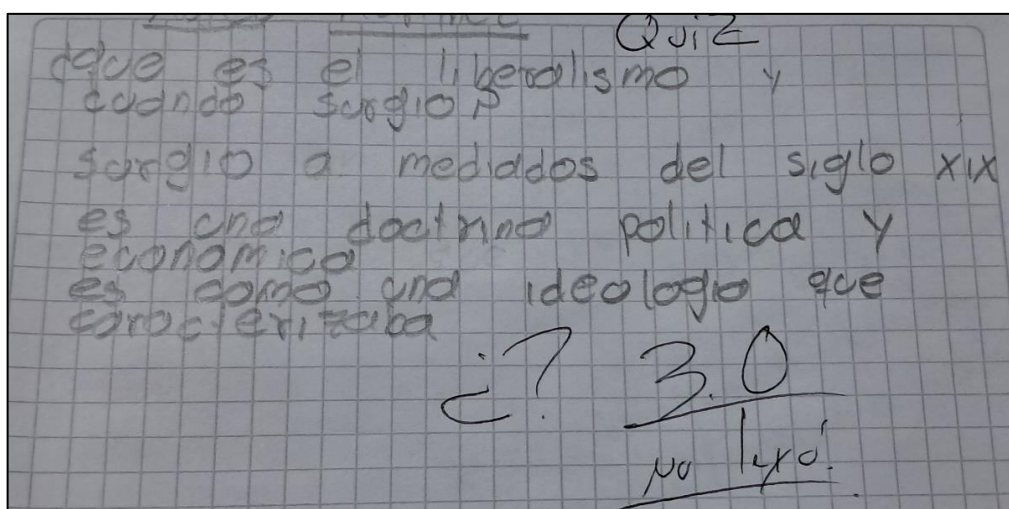 Quiz
¿que es el liberalismo y
cuando surgio?
surgio a mediados del siglo xix
es una doctrina politica y
economica
es como una ideologia que
caracterizaba
¿? 3.0
No leyó.